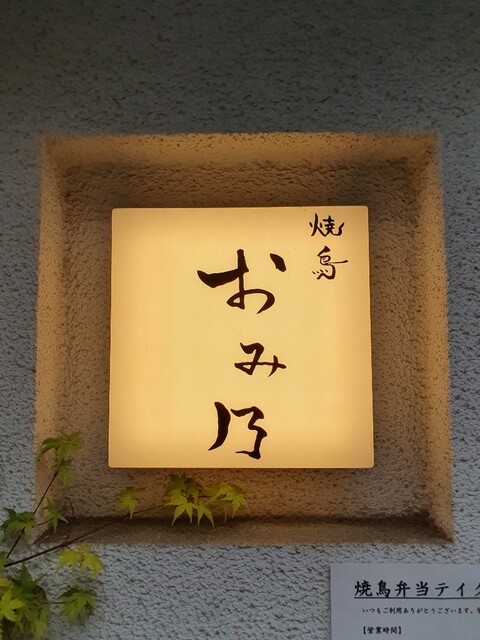 焼鳥
おみ乃
焼鳥弁当テイク
いつもご利用ありがとうございます。
【営業時間】